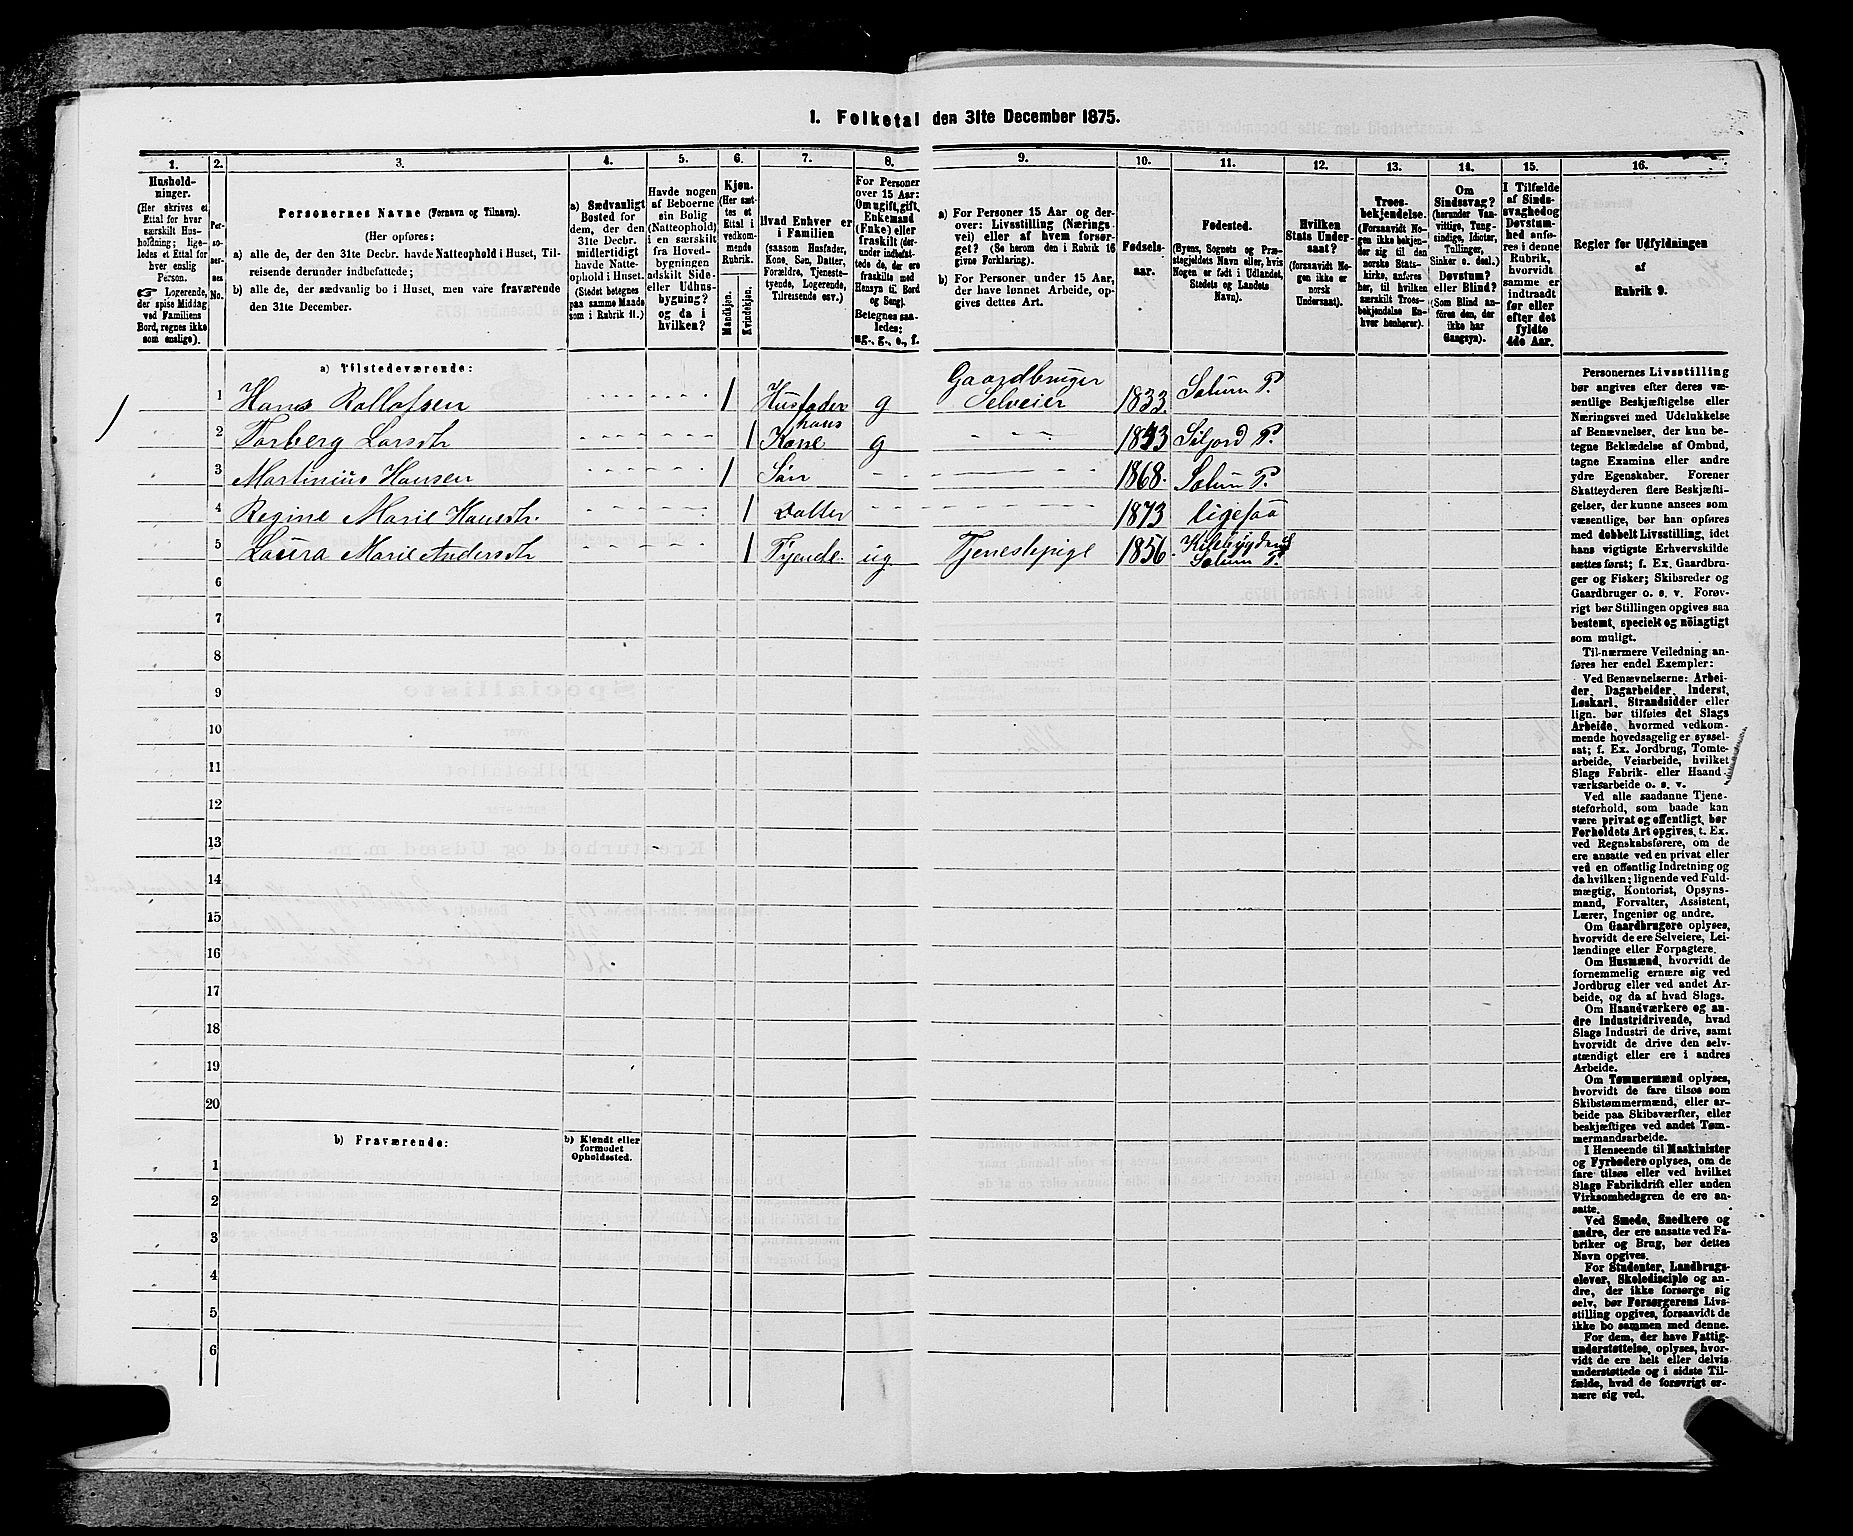 1. Folketal den 31te December 1875.
1. 2. 3. 4. 5. 6. 7. 8. 9. 10. 11. 12. 13. 14. 15. 16.
Hushold-
ninger.
(Her skrives et
Ettal for hver
særskilt Hus-
holdning; lige-
ledes et Ettal
for hver
enslig
Person.
☞ Logerende,
der spise Middag
ved Familiens
Bord, regnes ikke
som enslige).
Per-
so-
ner-
nes
No.
Personernes Navne (Fornavn og Tilnavn).
(Her opføres:
a) alle de, der den 31te Decbr. havde Natteophold i Huset, Til-
reisende derunder indbefattede;
b) alle de, der sædvanlig bo i Huset, men vare fraværende
den 31te December.
a) Sædvanligt
Bosted for
dem, der den
31te Decbr.
midlertidigt
havde Natte-
ophold i Huset.
(Stedet betegnes
paa samme Maade
som i Rubrik 11.)
Havde nogen
af Beboerne
sin Bolig
(Natteophold)
i en særskilt
fra Hoved-
bygningen
adskilt Side-
eller Udhus-
bygning?
og da i
hvilken?
Kjøn.
(Her sæt-
tes et
Ettal i
vedkom-
mende
Rubrik.
Mandkjøn.
Kvindekjøn.
Hvad Enhver er
i Familien
(saasom Husfader,
Kone, Søn, Datter,
Forældre, Tjeneste-
tyende, Logerende,
Tilreisende osv.)
For Personer
over 15 Aar:
Om ugift, gift,
Enkemand
(Enke) eller
fraskilt (der-
under indbefat-
tede de, der ere
fraskilte med
Hensyn til Bord
og Seng).
Betegnes saa-
ledes:
ug., g., e., f.
a) For Personer 15 Aar og der-
over: Livsstilling (Nærings-
vei) eller af hvem forsør-
get (Se herom den i Rubrik 16
givne Forklaring).
b) For Personer under 15 Aar,
der have lønnet Arbeide, op-
gives dettes Art.
Fødsels-
aar.
Fødested.
(Byens, Sognets og Præ-
stegjeldets Navn eller, hvis
Nogen er født i Udlandet,
Stedets og Landets
Navn).
Hvilken
Stats Under-
saat?
(forsaavidt No-
gen ikke er
norsk
Undersaat).
Troes-
bekjendelse.
(Forsaavidt Nogen
ikke bekjen-
der sig til den
norske Stats-
kirke, anføres
her, til hvilken
særskilt Troes-
bekjendelse En-
hver henhører).
Om
Sindssvag?
(herunder Van-
vittige, Tung-
sindige, Idioter,
Tullinger,
Sinker o. desl.)
Døvstum?
eller Blind?
(Som Blind an-
føres den, der
ikke har
Gangsyn).
I Tilfælde
af Sinds-
svaghed og
Døvstum-
hed anfø-
res i denne
Rubrik,
hvorvidt
samme er
indtraadt
før eller
efter det
fyldte
4de Aar.
Regler for Udfyldningen
af
Rubrik 9.
a) Tilstedeværende:
1 Hans Rolløfsen 1 Husfader g Gaardbruger Selveier 1833. Solum P.
2 Torberg Larsdtr 1 hans Kone g 1833 Siljord P.
3 Martinius Hansen 1 Søn 1868. Solum P.
4 Regine Marie Hansdtr. 1 Datter 1873 ligesaa
5 Laura Marie Andersdtr 1 Tjende ug. Tjenestepige 1856 Kilebygden Solum P.
6
7
8
9
10
11
12
13
14
15
16
17
18
19
20
b) Fraværende:
b) Kjendt eller
formodet
Opholdssted.
1
2
3
4
5
6
Personernes Livsstilling
bør angives efter deres væ-
sentlige Beskjæftigelse eller
Næringsvei med Udelukkelse
af Benævnelser, der kun be-
tegne Beklædelse af Ombud,
tagne Examina eller andre
ydre Egenskaber. Forener
Skatteyderen flere Beskjæfti-
gelser, der kunne ansees som
væsentlige, bør han opføres
med dobbelt Livsstilling, idet
hans vigtigste Erhvervskilde
sættes først; f. Ex. Gaardbru-
ger og Fisker; Skibsreder og
Gaardbruger o. s. v. Forøv-
rigt bør Stillingen opgives saa
bestemt, specielt og nøiagtigt
som muligt.
Til nærmere Veiledning an-
føres her endel Exempler:
Ved Benævnelserne: Arbei-
der, Dagarbeider, Inderst,
Løskarl, Strandsidder eller
lign. bør tilføies det Slags
Arbeide, hvormed vedkom-
mende hovedsagelig er syssel-
sat; f. Ex. Jordbrug, Tomte-
arbeide, Veiarbeide, hvilket
Slags Fabrik- eller Haand-
værksarbeide o. s. v.
Ved alle saadanne Tjene-
steforhold, som baade kan
være privat og offentligt, bør
Forholdets Art opgives, t. Ex.
ved Regnskabsførere, om de
ere ansatte ved en privat eller
ved en offentlig Indretning og
da hvilken; lignende ved Fuld-
mægtig, Kontorist, Opsyns-
mand, Forvalter, Assistent,
Lærer, Ingeniør og andre.
Om Gaardbrugere oplyses,
hvorvidt de ere Selveiere, Lei-
lændinge eller Forpagtere.
Om Husmænd, hvorvidt de
fornemmelig ernære sig ved
Jordbrug eller ved andet Ar-
beide, og da af hvad Slags.
Om Haandværkere og an-
dre industridrivende, hvad
Slags Industri de drive, samt
hvorvidt de drive den selv-
stændigt eller ere i andres
Arbeide.
Om Tømmermænd oplyses,
hvorvidt de fare tilsøs som
Skibstømmermænd, eller ar-
beide paa Skibsværfter, eller
beskjæftiges ved andet Tøm-
mermandsarbeide.
I Henseende til Maskinister
og Fyrbødere oplyses, om de
fare tilsøs eller ved hvilket
Slags Fabrikdrift eller anden
Virksomhedsgren de ere an-
satte.
Ved Smede, Snedkere og
andre, der ere ansatte ved Fa-
briker og Brug, bør dettes
Navn opgives.
For Studenter, Landbrugs-
elever, Skoledisciple og an-
dre, der ikke forsørge sig
selv, bør Forsørgerens Livs-
stilling opgives, forsaavidt de
ikke bo sammen med denne.
For dem, der have Fattig-
understøttelse, oplyses, hvor-
vidt de ere helt eller delvis
understøttede og i sidste Til-
fælde, hvad de forøvrigt er-
nære sig ved.